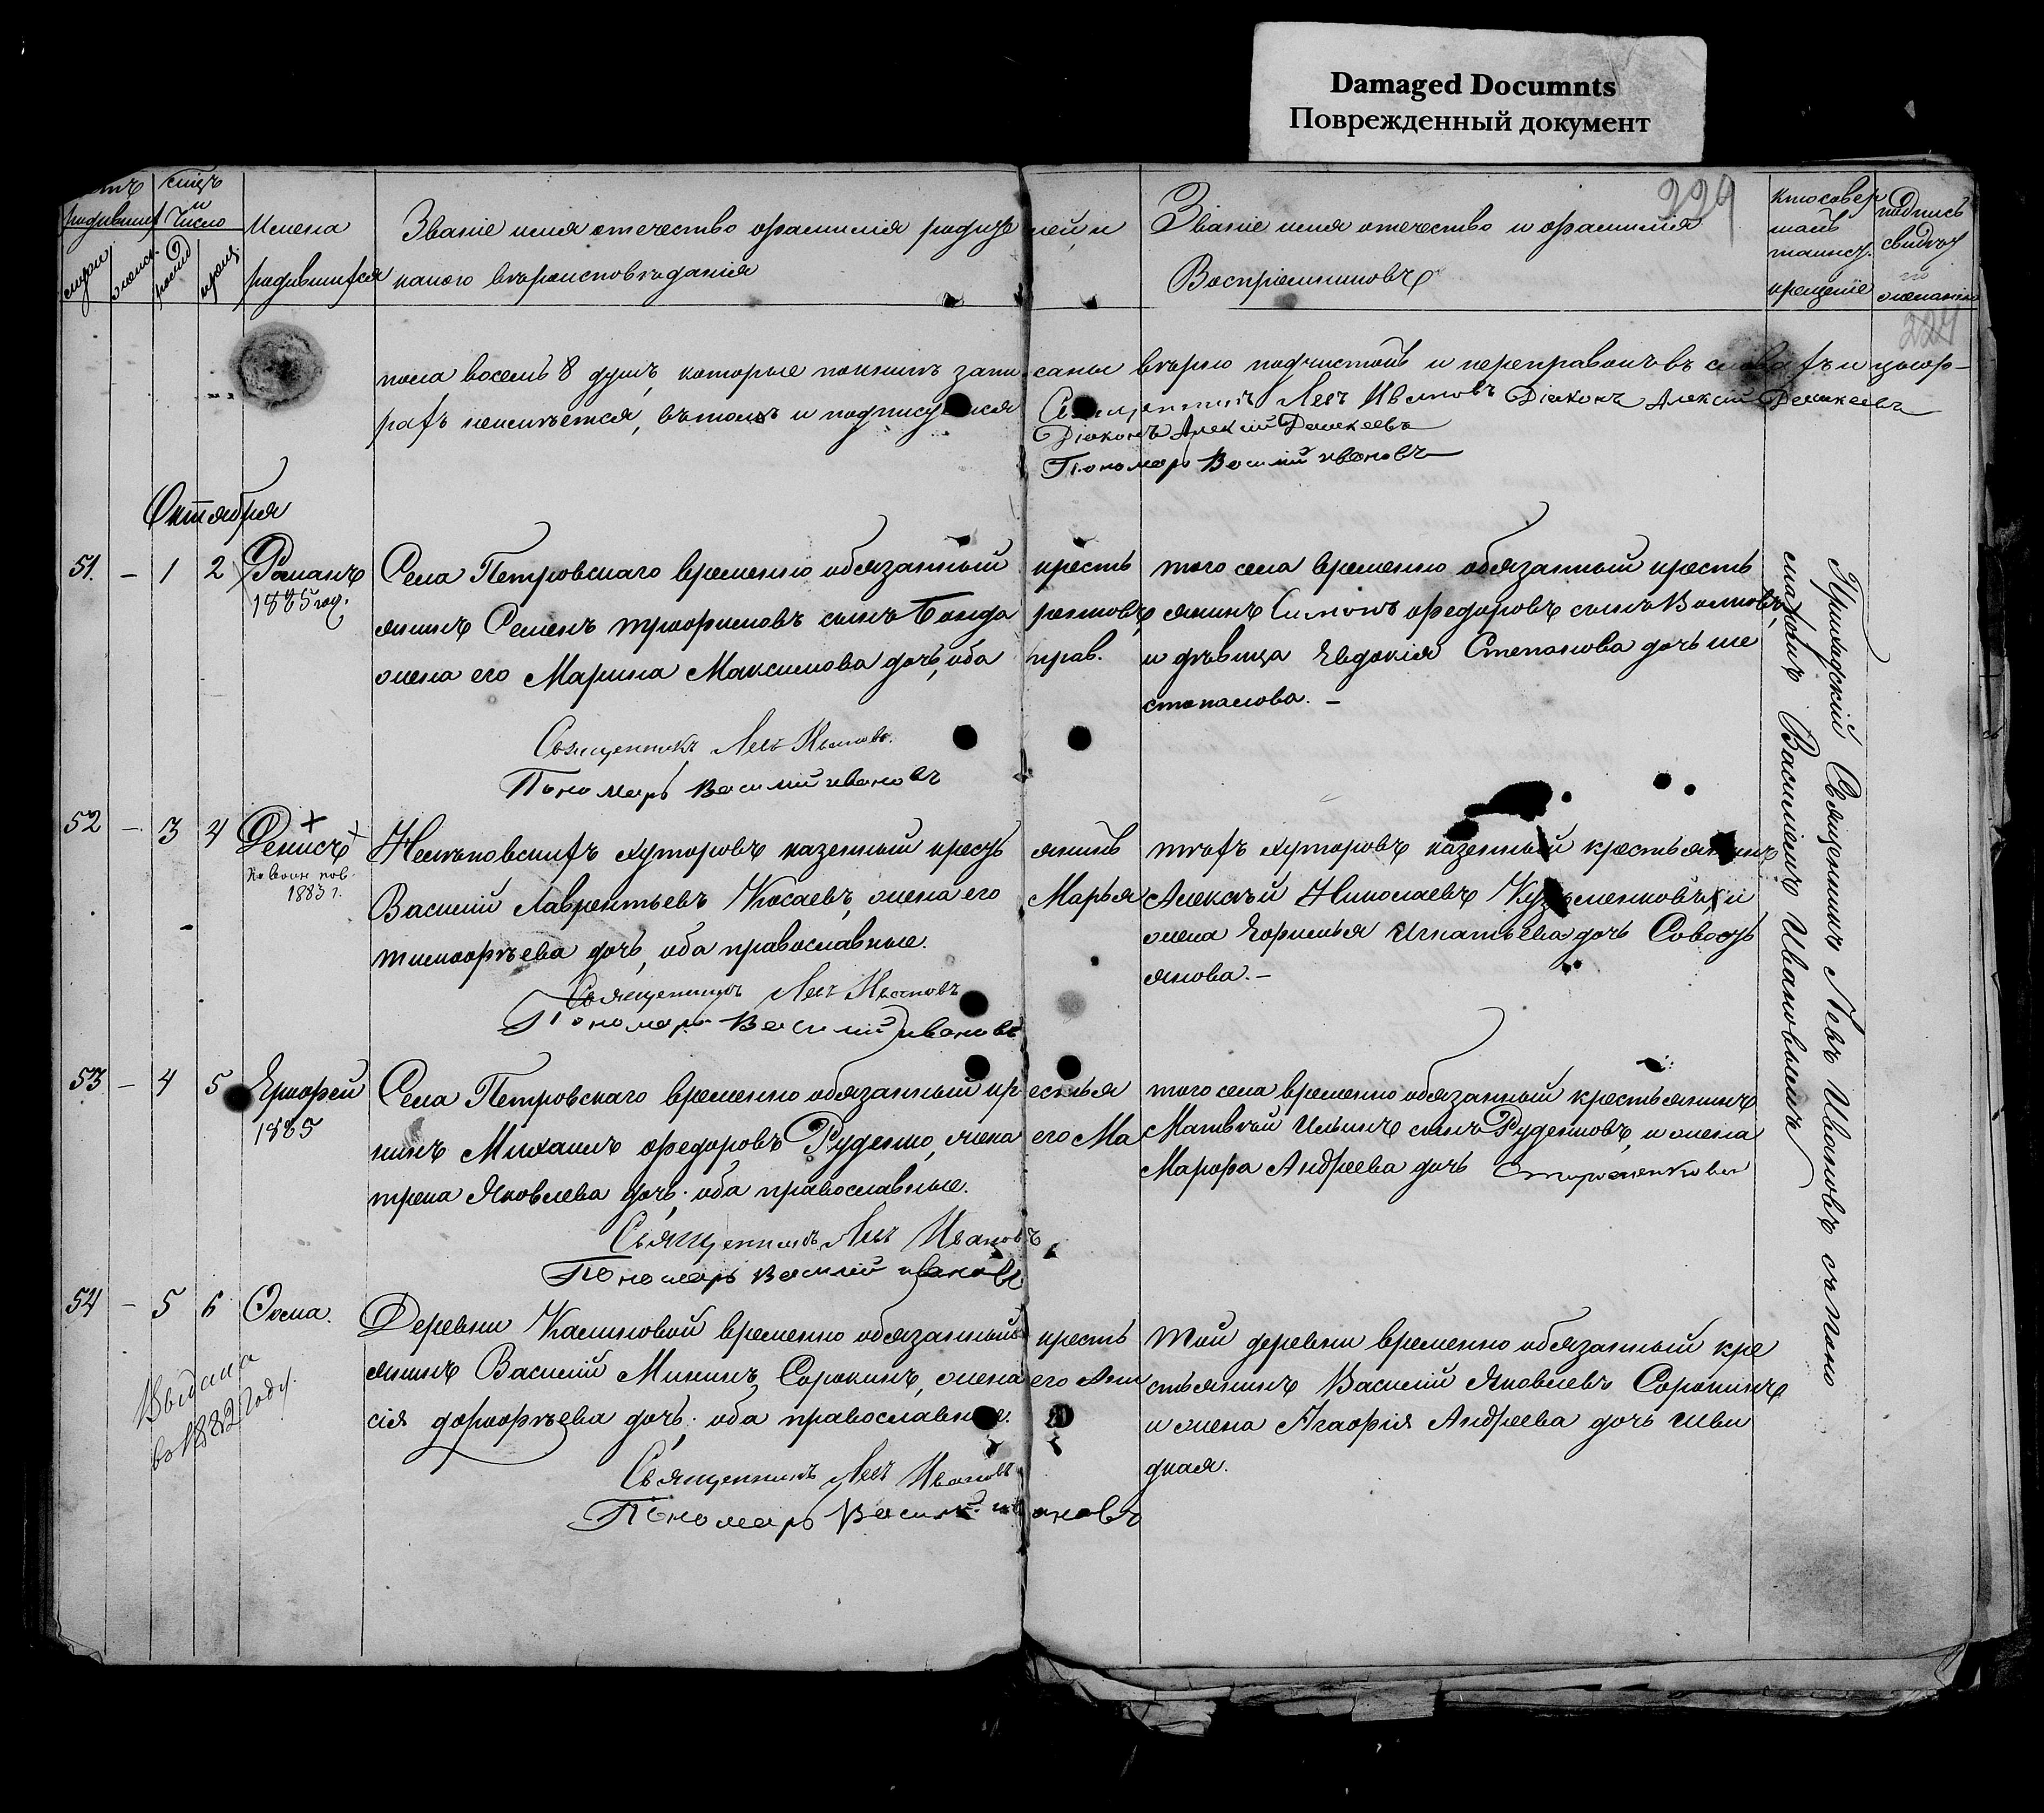 Damaged Documnts
Поврежденный документ
224
родившихся
Месяцъ и число
Имена родившихся
Званіе имя отечество и фамилія родителей и какого вѣроисповѣданія
Званіе имя отечество и фамилія Воспріемниковъ
кто совершалъ таинст. крещеніе
Подпись свидѣт. по желанію
пола восемь 8 душъ, которые по книгамъ записаны вѣрно подчистокъ и переправокъ въ словахъ и циф-
рахъ неимѣется, въ томъ и подписуемся Священникъ Левъ Ивановъ Діаконъ Алексій
Діаконъ Алексій
Пономарь Василий Ивановъ
Октября
51. – 1 2 Романъ
1885 год.
Села Петровскаго временно обязанный кресть
янинъ Семенъ трофимовъ сынъ Бондаренковъ,
жена его Марина Максимова дочь, оба прав.
того села временно обязанный кресть
янинъ Симонъ федоровъ сынъ Волковъ,
и дѣвица Евдокія Степанова дочь ше
стопалова. –
Священникъ Левъ Ивановъ.
Пономарь Василий ивановъ
52 – 3 4 Денисъ
1883 г.
хуторовъ казенный крестьянинъ
Василій Лаврентьевъ Косаевъ, жена его Марья
тимофѣева дочь, оба православные.
тѣхъ хуторовъ казенный крестьянинъ
Алексѣй Николаевъ Кузьменковъ, и
жена Ефимья Игнатьева дочь
янова. –
Священникъ Левъ Ивановъ
Пономарь Василий ивановъ
53 – 4 5 Ерофей
1885
Села Петровскаго временно обязанный крестья
нинъ Михаилъ федоровъ Руденко, жена его Ма
трена Яковлева дочь; оба православные.
того села временно обязанный крестьянинъ
Матвѣй Ильинъ сынъ Руденковъ, и жена
Марфа Андреева дочь
Священникъ Левъ Ивановъ
Пономарь Василий ивановъ
54 – 5 6 Фома.
Выдана
въ 1882 году.
Деревни Калиновой временно обязанный кресть
янинъ Василій Мининъ Сорокинъ, жена его Ани
сія дорофѣева дочь; оба православные.
той деревни временно обязанный кре
стьянинъ Василій Яковлевъ Сорокинъ
и жена Агафія Андреева дочь Шви
дкая.
Священникъ Левъ Ивановъ
Пономарь Василий ивановъ
Приходскій Священникъ Левъ Ивановъ съ поно
маремъ Василіемъ Ивановымъ